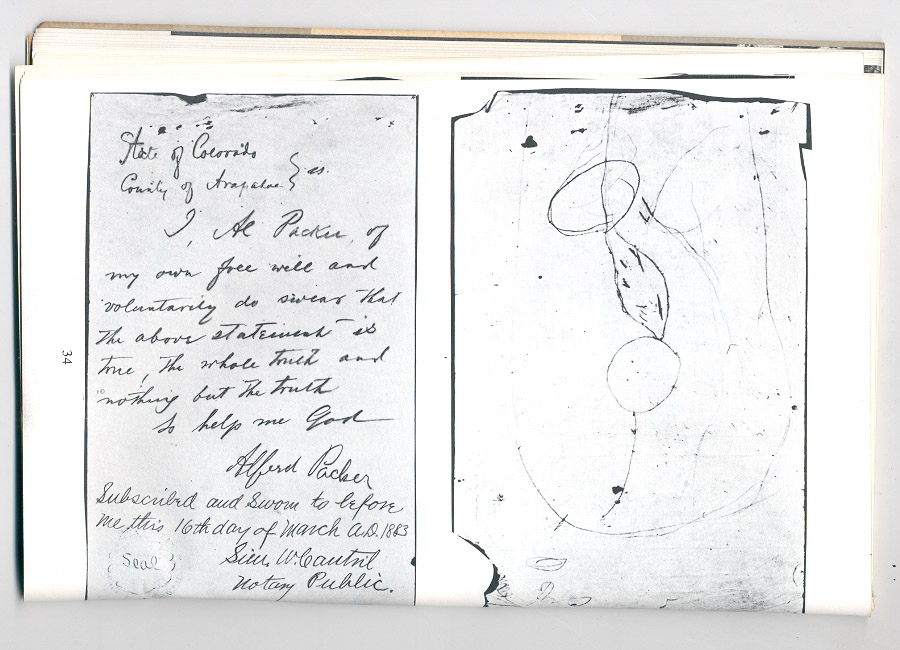 State of Colorado
County of Arapahoe } ss.
I, Al Packer, of
my own free will and
voluntarily do swear that
the above statement is
true, the whole truth and
nothing but the truth
So help me God
Alferd Packer
Subscribed and Sworn to before
me this 16th day of March A.D. 1883
Sim W. Cantril
Notary Public.
Seal
34